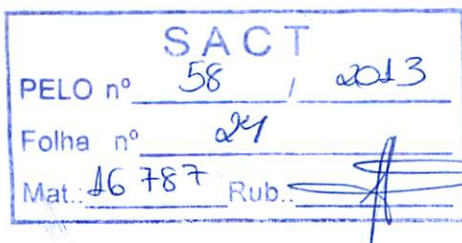 SACT
PELO nº 58 / 2013
Folha nº 24
Mat.: 16 787 Rub.: